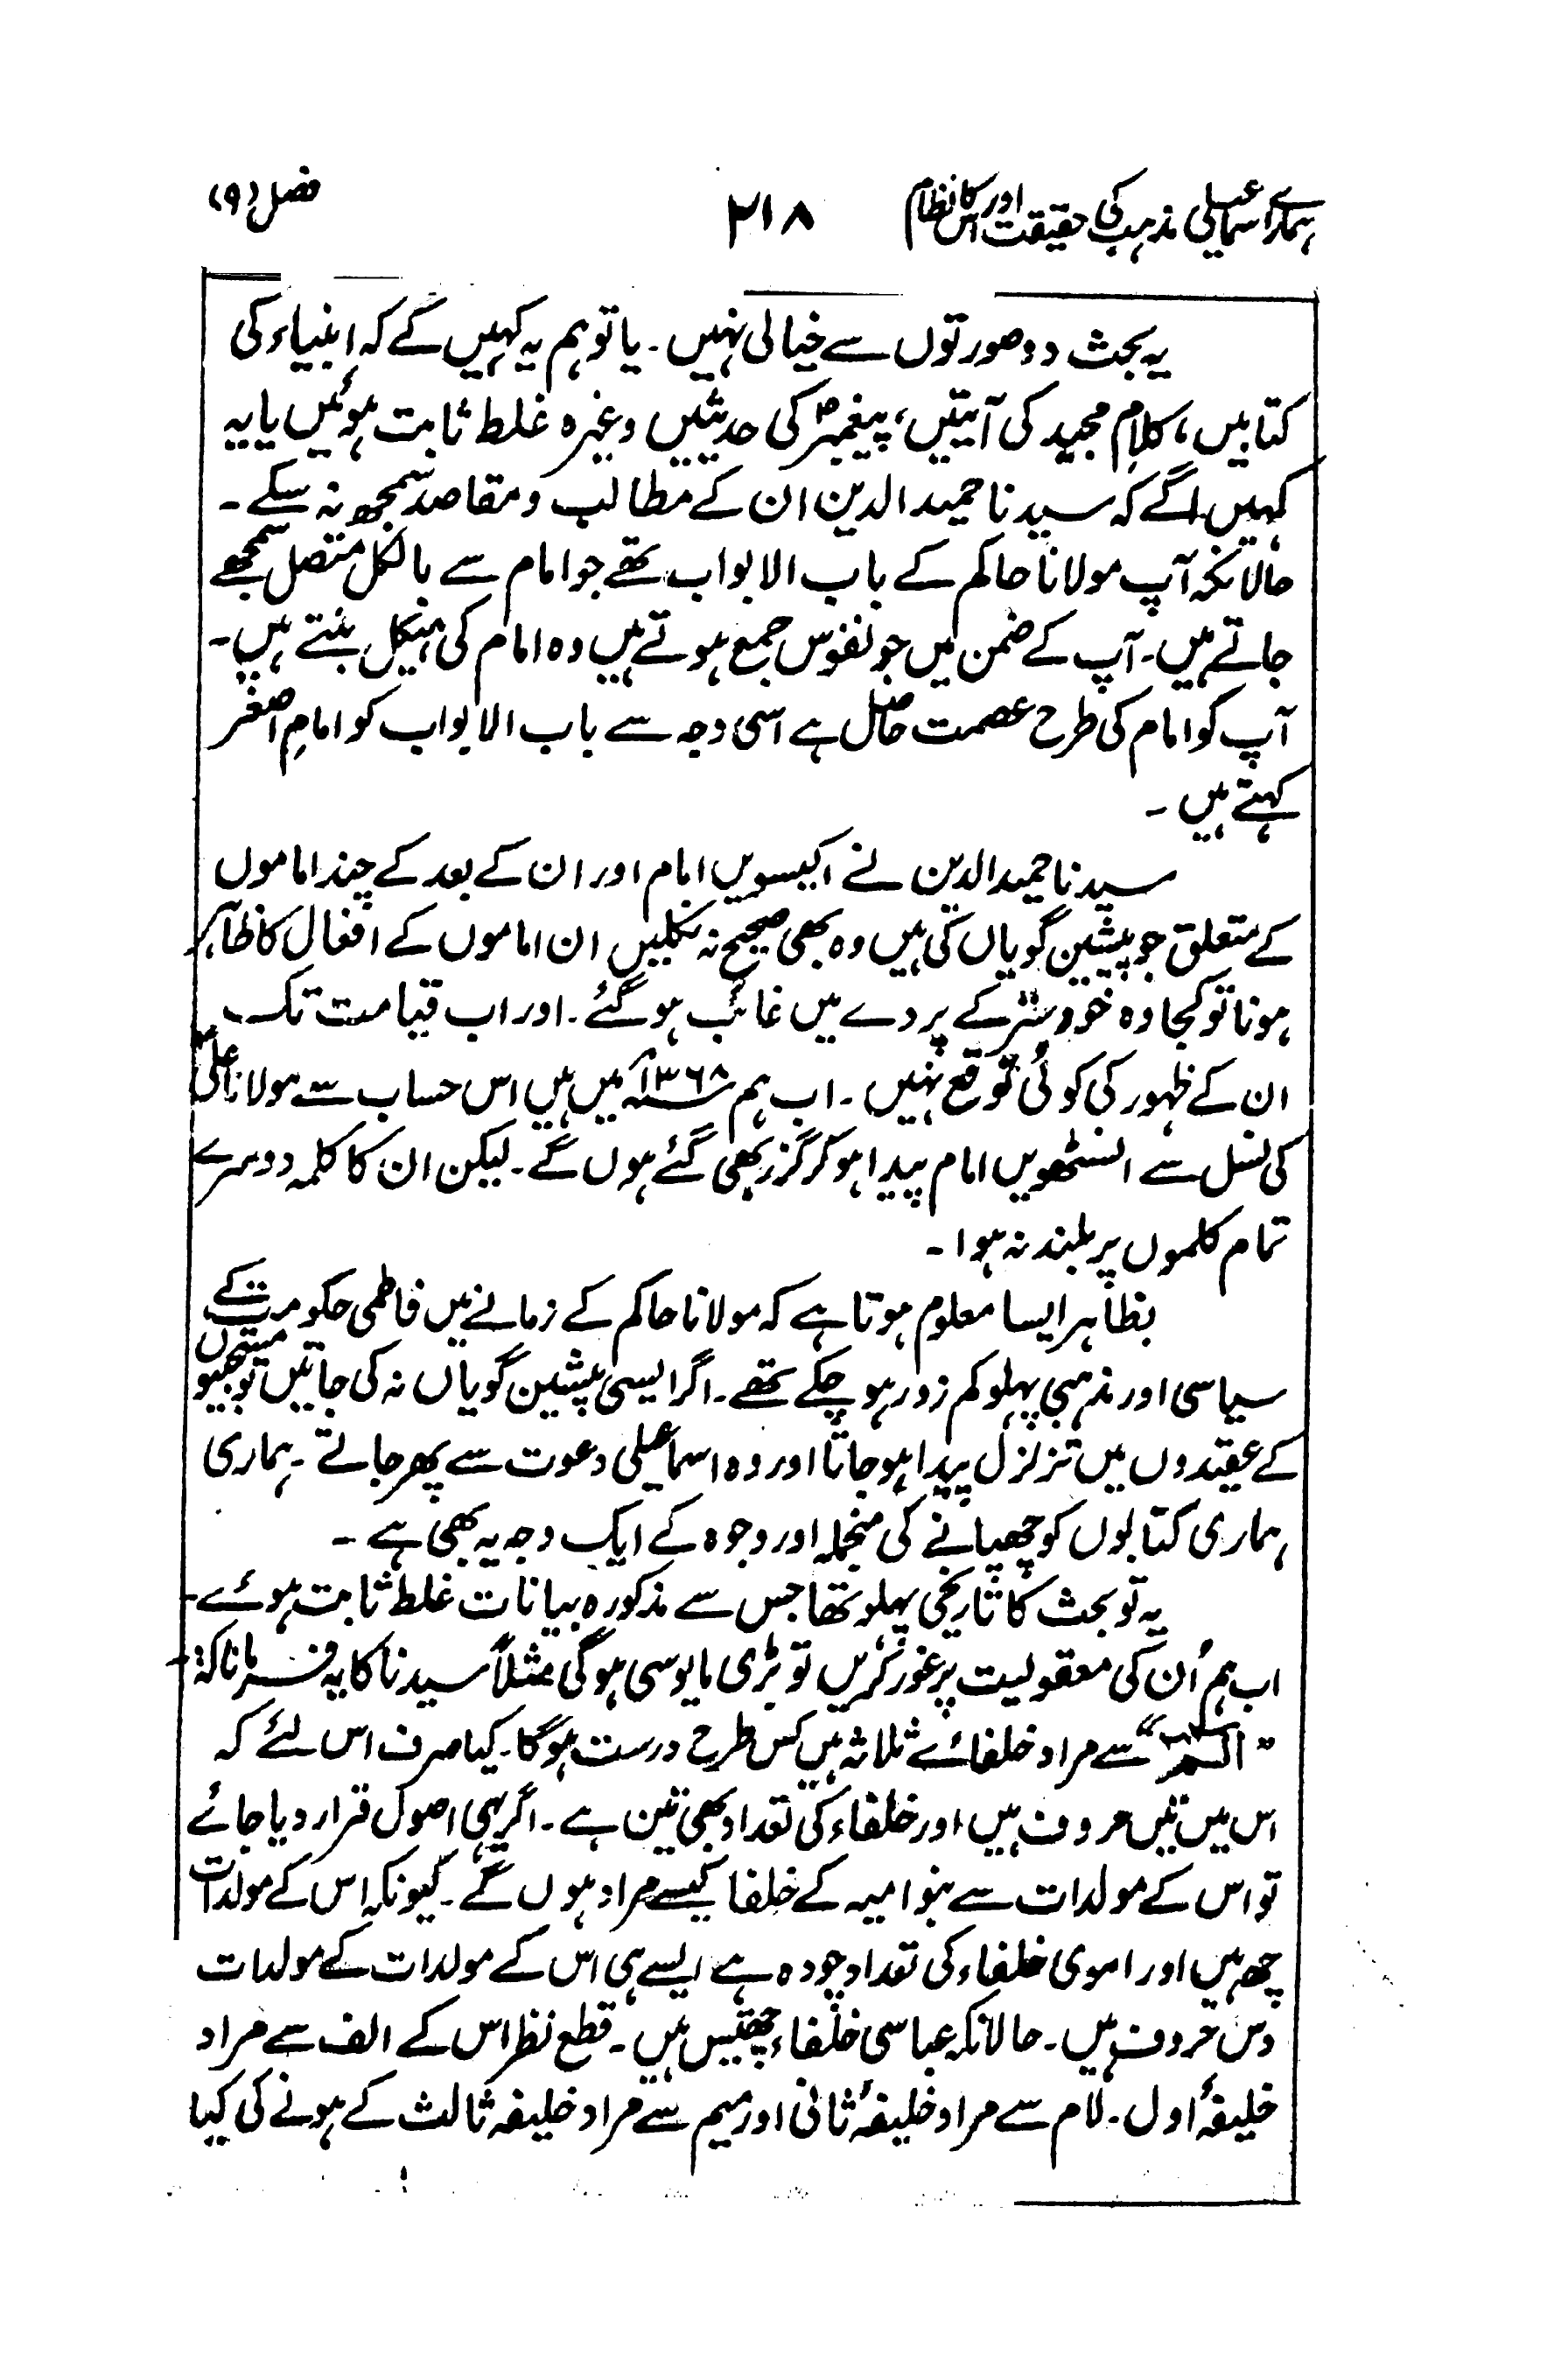 ہمارے اسماعیلی مذہب کی حقیقت اور اس کا نظام ۲۱۸ فصل (۹)
یہ بحث دو صورتوں سے خیالی نہیں ۔ یا تو ہم یہ کہیں گے کہ انبیاء کی
کتابیں ، کلامِ مجید کی آیتیں ، پیغمبرؐ کی حدیثیں وغیرہ غلط ثابت ہوئیں یا یہ
کہیں گے کہ سیدنا حمید الدین ان کے مطالب و مقاصد سمجھ نہ سکے ۔
حالانکہ آپ مولانا حاکم کے باب الابواب تھے جو امام سے بالکل متصل سمجھے
جاتے ہیں ۔ آپ کے ضمن میں جو نفوس جمع ہوتے ہیں وہ امام کی ہیکل بنتے ہیں ۔
آپ کو امام کی طرح عصمت حاصل ہے اسی وجہ سے باب الابواب کو امامِ اصغر
کہتے ہیں ۔
سیدنا حمید الدین نے اکیسویں امام اور ان کے بعد کے چند اماموں
کے متعلق جو پیشین گویاں کی ہیں وہ بھی صحیح نہ نکلیں ان اماموں کے افعال کا ظاہر
ہونا تو کجا وہ خود ستر کے پردے میں غائب ہو گئے ۔ اور اب قیامت تک
ان کے ظہور کی کوئی توقع نہیں ۔ اب ہم ۱۳۶۸ھ میں ہیں اس حساب سے مولانا علیؑ
کی نسل سے انسٹھویں امام پیدا ہو کر گزر بھی گئے ہوں گے ۔ لیکن ان کا کلمہ دوسرے
تمام کلموں پر بلند نہ ہوا ۔
بظاہر ایسا معلوم ہوتا ہے کہ مولانا حاکم کے زمانے میں فاطمی حکومت کے
سیاسی اور مذہبی پہلو کم زور ہو چکے تھے ۔ اگر ایسی پیشین گویاں نہ کی جاتیں تو مستجیبوں
کے عقیدوں میں تزلزل پیدا ہو جاتا اور وہ اسماعیلی دعوت سے پھر جاتے ۔ ہماری
ہماری کتابوں کو چھپانے کی منجملہ اور وجوہ کے ایک وجہ یہ بھی ہے ۔
یہ تو بحث کا تاریخی پہلو تھا جس سے مذکورہ بیانات غلط ثابت ہوئے ۔
اب ہم اُن کی معقولیت پر غور کریں تو بڑی مایوسی ہو گی مثلاً سیدنا کا یہ فرمانا کہ
" الٓمٓ " سے مراد خلفائے ثلاثہ ہیں کس طرح درست ہو گا ۔ کیا صرف اس لئے کہ
اس میں تین حروف ہیں اور خلفاء کی تعداد بھی تین ہے ۔ اگر یہی اصول قرار دیا جائے
تو اس کے مولدات سے بنو امیہ کے خلفا کیسے مراد ہوں گے ۔ کیونکہ اس کے مولدات
چھ ہیں اور اموی خلفاء کی تعداد چودہ ہے ایسے ہی اس کے مولدات کے مولدات
دس حروف ہیں ۔ حالانکہ عباسی خلفاء چھتیس ہیں ۔ قطع نظر اس کے الف سے مراد
خلیفۂ اول ۔ لام سے مراد خلیفۂ ثانی اور میم سے مراد خلیفہ ثالث کے ہونے کی کیا